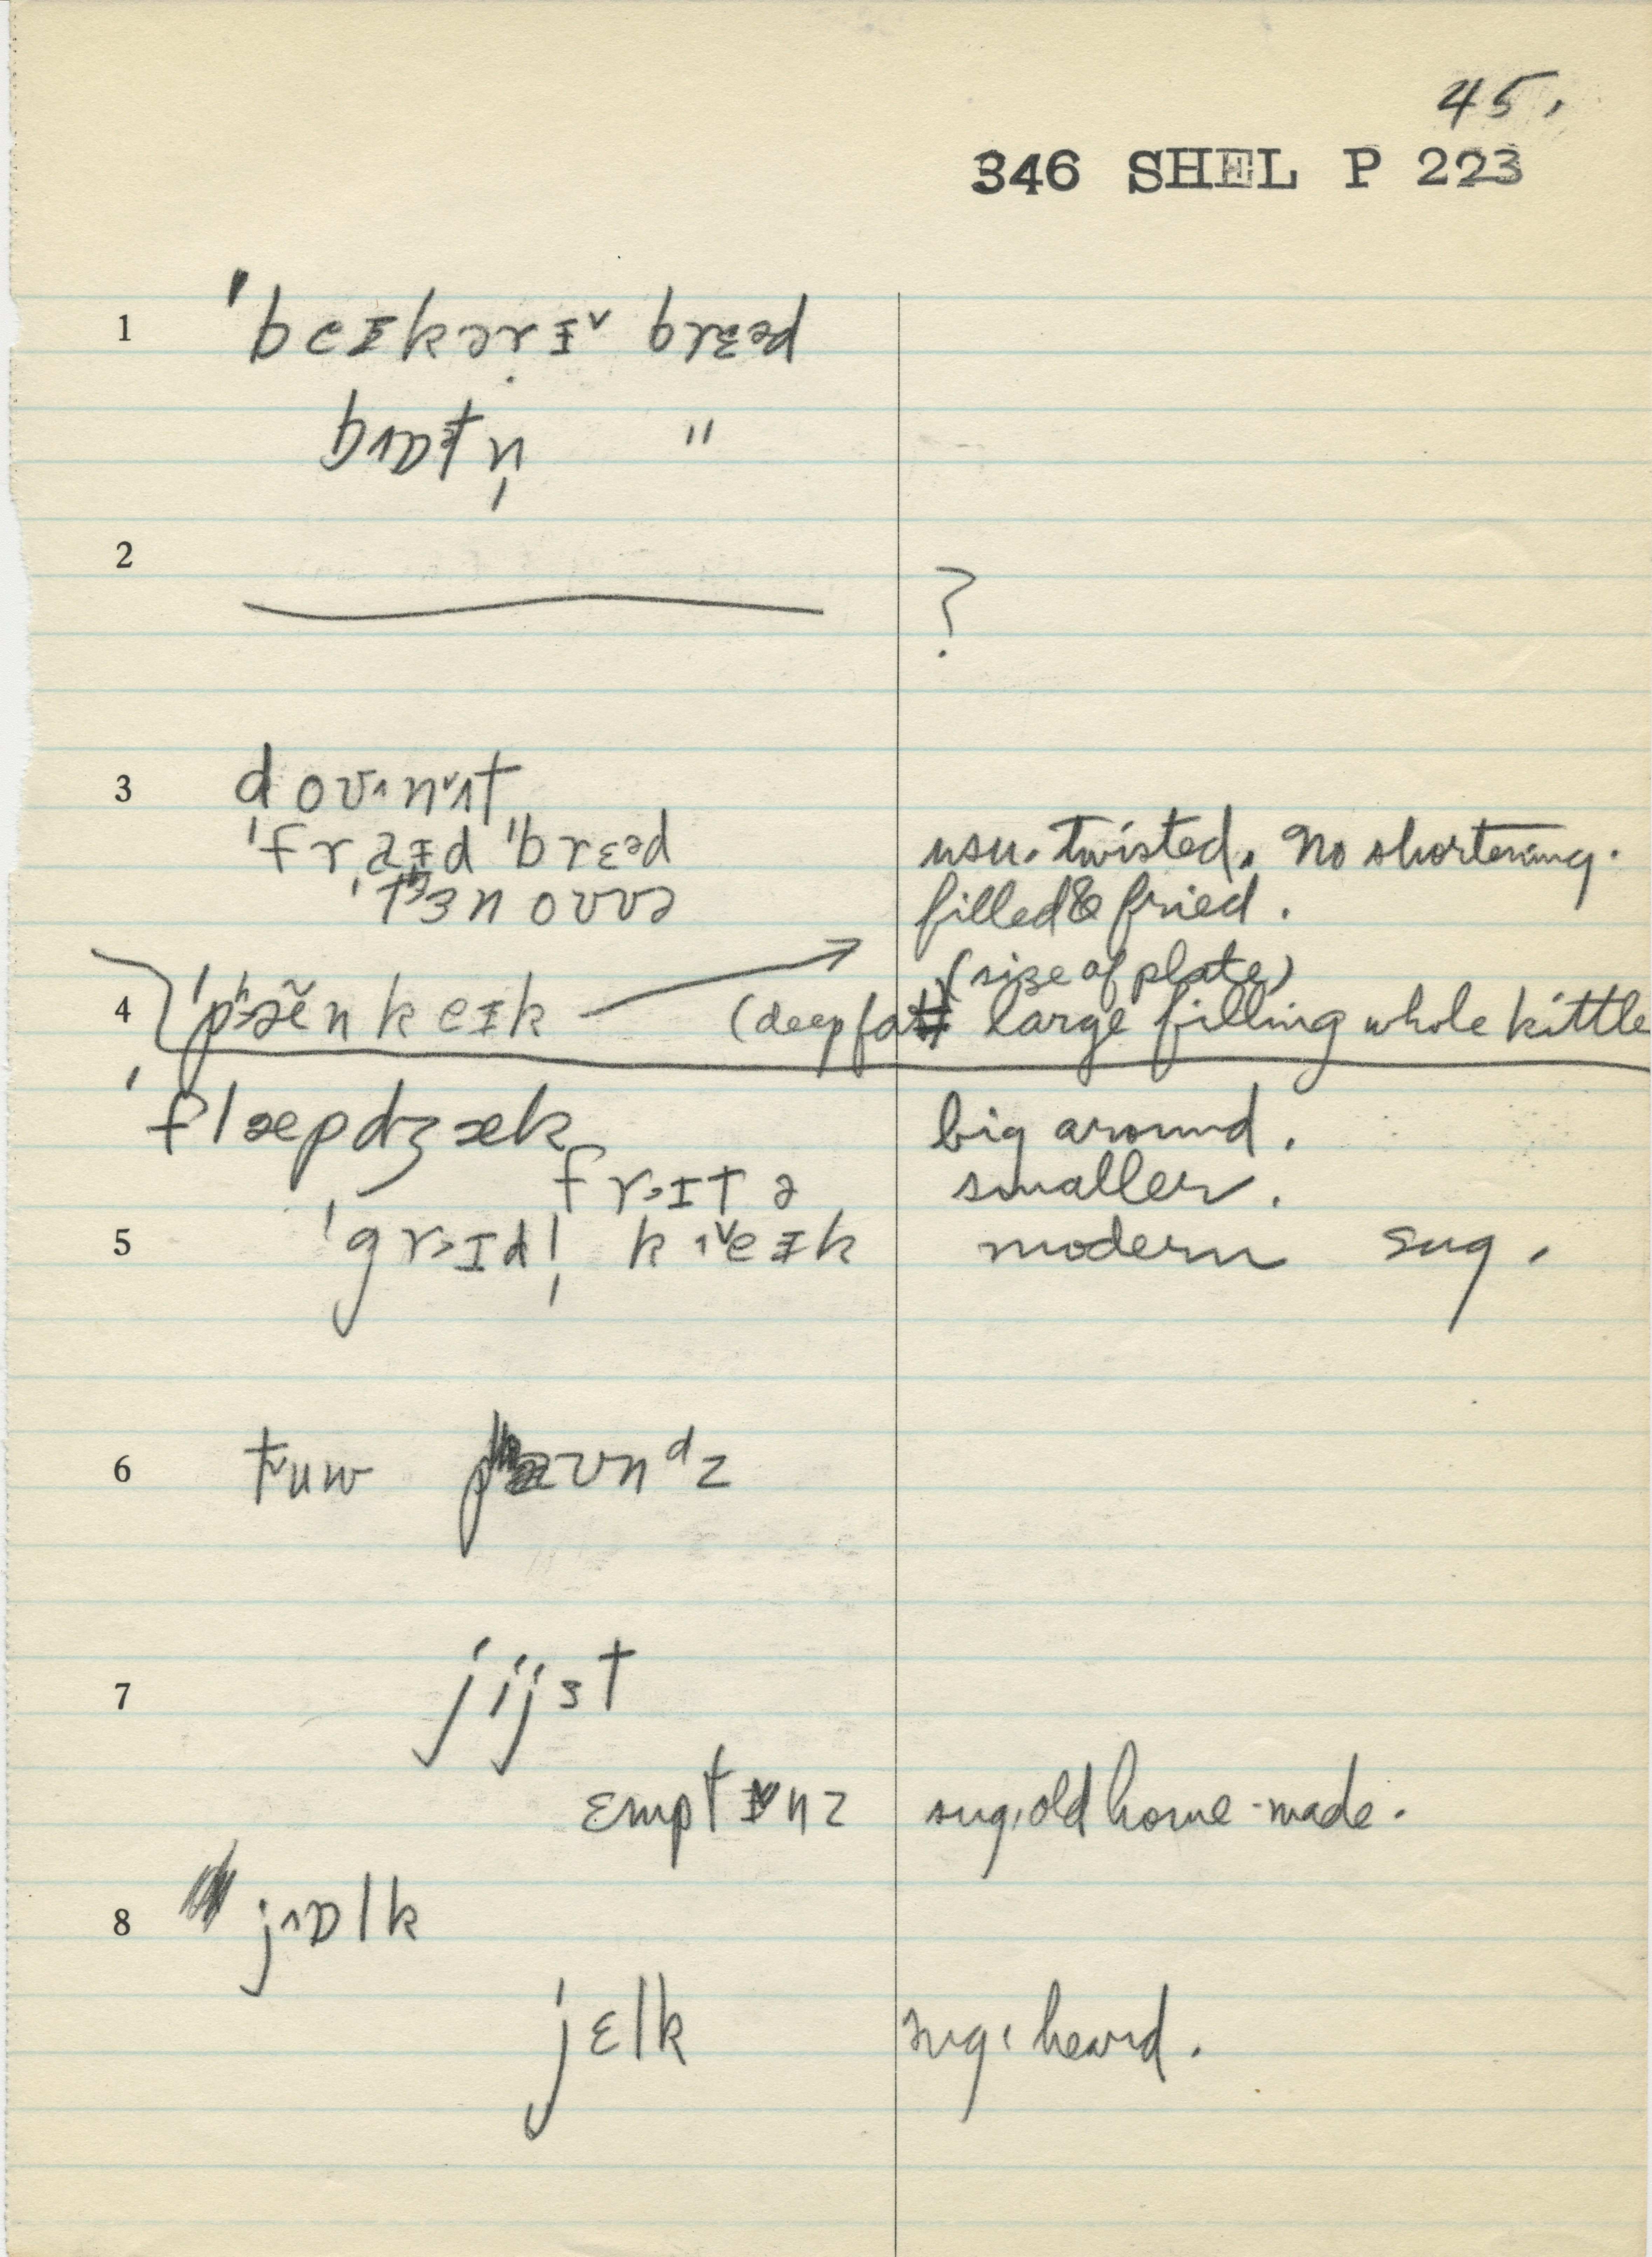 45.
346 SHEL P 223
1 ˈbeɪkərɪ˅ brɛəd
bɒtn̩ "
2 ?
3 doʊnʌt
ˈfraɪd ˈbrɛəd usu. twisted. No shortening.
ˈtʰɜnoʊvə filled & fried.
(size of plate)
4 ˈpʰæ̃nkeɪk (deep fat) large filling whole kittle
ˈflæpdʒæk big around.
fraɪtə smaller.
5 ˈgrɪdl̩ keɪk modern sug.
6 tuw paʊnᵈz
7 jijst
ɛmptɪnz sug. old home-made.
8 jɒlk
jɛlk sug: heard.